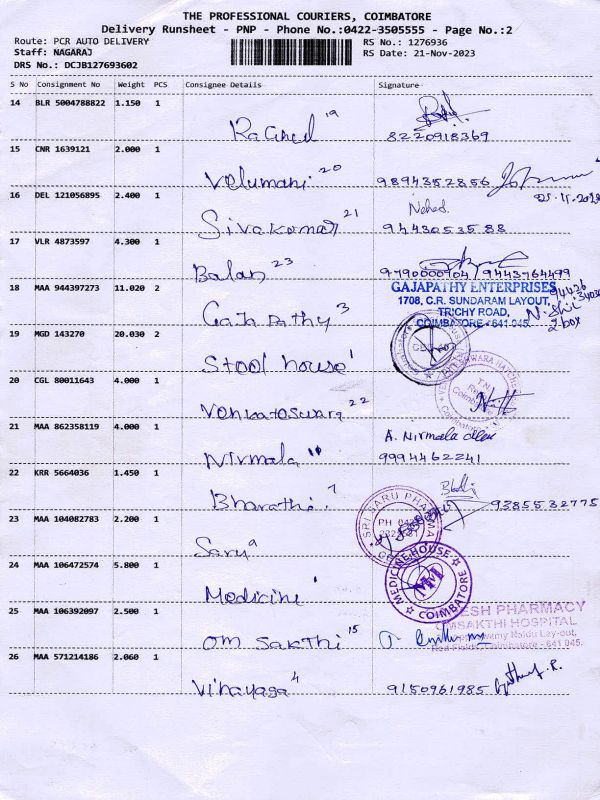 THE PROFESSIONAL COURIERS, COIMBATORE
Delivery Runsheet - PNP - Phone No.:0422-3505555 - Page No.:2
Route: PCR AUTO DELIVERY
Staff: NAGARAJ
DRS No.: DCJB127693602
RS No.: 1276936
RS Date: 21-Nov-2023
S No Consignment No Weight PCS Consignee Details Signature
14 BLR 5004788822 1.150 1
19
8220918369
15 CNR 1639121 2.000 1
Velumani 20 9894352856
16 DEL 121056895 2.400 1
Sivakumar 21 9443053588
17 VLR 4873597 4.300 1
Balan 23 9790000704 / 9443764499
18 MAA 944397273 11.020 2
GAJAPATHY ENTERPRISES
1708, C.R. SUNDARAM LAYOUT,
TRICHY ROAD,
COIMBATORE - 641 045.
2 box
Gaja Pathy 3
19 MGD 143270 20.030 2
Steel house 1
20 CGL 80011643 4.000 1
Venkateswara 22
21 MAA 862358119 4.000 1
A. Nirmala
Nirmala 9994462241
22 KRR 5664036 1.450 1
Bharathi 7 9385532775
23 MAA 104082783 2.200 1
SRI SARU PHARMA
Saru 9
24 MAA 106472574 5.800 1
MEDICINE HOUSE
MH
COIMBATORE
Medicine 1
25 MAA 106392097 2.500 1
ESH PHARMACY
OMSAKTHI HOSPITAL
Naidu Lay-out,
Red Fields, Coimbatore - 641 045.
Om Sakthi 15
26 MAA 571214186 2.060 1
Vinayaga 4 9150961985